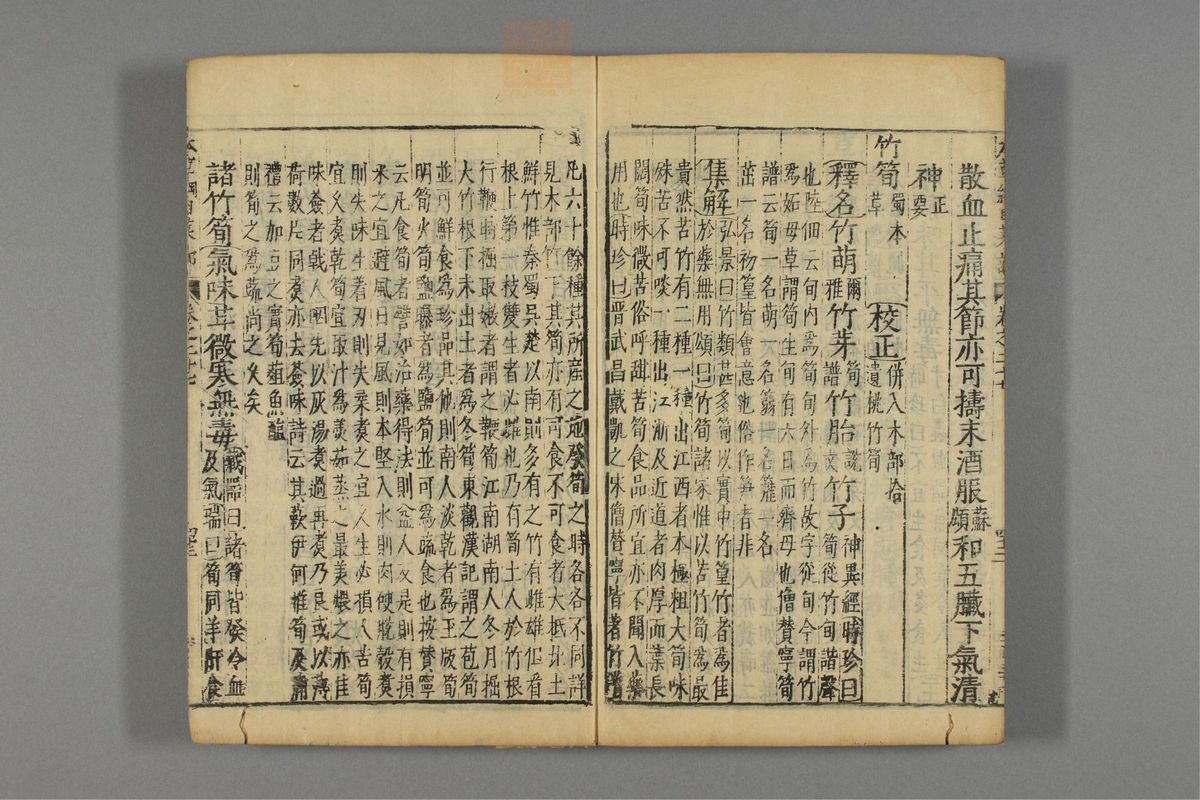 散血止痛其節亦可擣末酒服蘇頌和五臟下氣清
神正要
竹筍蜀本草校正併入木部拾遺桃竹筍
釋名竹萌爾雅竹芽筍譜竹胎說文竹子神異經時珍曰筍從竹旬諧聲
也陸佃云旬内為筍旬外為竹故字從旬今謂竹
為妬母草謂筍生旬有六日而齊母也僧贊寧筍
譜云筍一名萌一名蒻一名籜一名
茁一名初篁皆會意也俗作笋者非
集解弘景曰竹類甚多筍以實中竹篁竹者為佳
於藥無用頌曰竹筍諸家惟以苦竹筍為最
貴然苦竹有二種一種出江西者本極粗大筍味
殊苦不可啖一種出江浙及近道者肉厚而葉長
闊筍味微苦俗呼甜苦筍食品所宜亦不聞入藥
用也時珍曰晉武昌戴凱之宋僧贊寧皆著竹譜
凡六十餘種其所産之地發筍之時各各不同詳
見木部竹下其筍亦有可食不可食者大抵北土
鮮竹惟秦蜀吳楚以南則多有之竹有雌雄但看
根上第一枝雙生者必雌也乃有筍土人於竹根
行鞭時掘取嫩者謂之鞭筍江南湖南人冬月掘
大竹根下未出土者為冬筍東觀漢記謂之苞筍
並可鮮食為珍品其他則南人淡乾者為玉版筍
明筍火筍鹽曝者為鹽筍並可為蔬食也按贊寧
云凡食筍者譬如治藥得法則益人反是則有損
采之宜避風日見風則本堅入水則肉硬脫殼煮
則失味生著刃則失柔煮之宜久生必損人苦筍
宜久煮乾筍宜取汁為羹茹蒸之最美煨之亦佳
味薟者戟人咽先以灰湯煮過再煮乃良或以薄
荷數片同煮亦去薟味詩云其蔌伊何惟筍及蒲
禮云加豆之實筍菹魚醢
則筍之為蔬尚之矣
諸竹筍氣味甘微寒無毒藏器曰諸筍皆發冷血及氣瑞曰筍同羊肝食